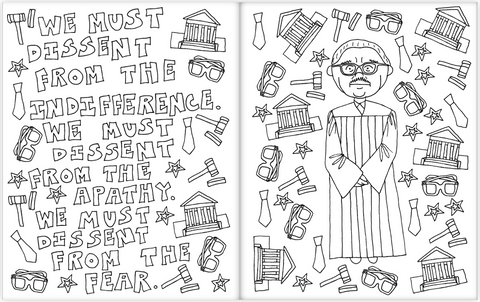 WE MUST
DISSENT
FROM THE
INDIFFERENCE.
WE MUST
DISSENT
FROM THE
APATHY.
WE MUST
DISSENT
FROM THE
FEAR.